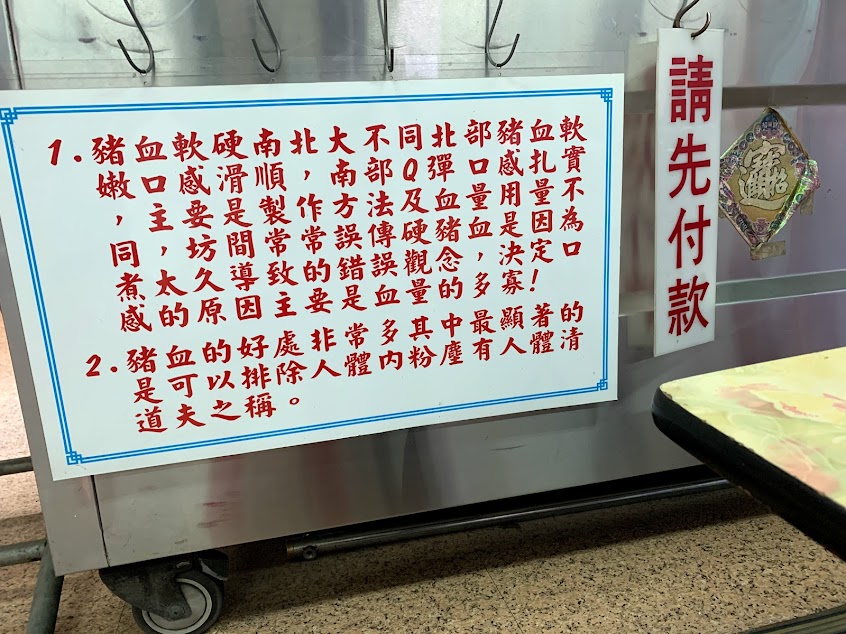 1.豬血軟硬南北大不同北部豬血軟
嫩口感滑順，南部Q彈口感扎實
，主要是製作方法及血量用量不
同，坊間常常誤傳硬豬血是因為
煮太久導致的錯誤觀念，決定口
感的原因主要是血量的多寡！
2.豬血的好處非常多其中最顯著的
是可以排除人體內粉塵有人體清
道夫之稱。
請先付款